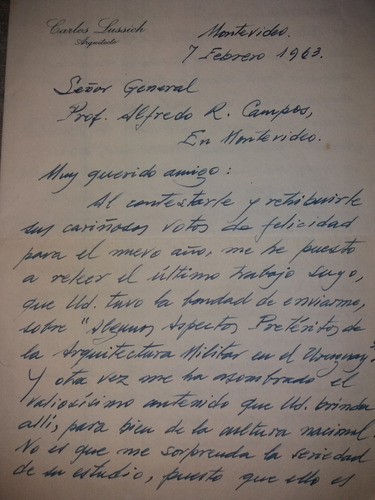 Carlos Lussich
Arquitecto
Montevideo.
7 Febrero 1963.
Señor General
Prof. Alfredo R. Campos,
En Montevideo.
Muy querido amigo:
Al contestarle y retribuirle
sus cariñosos votos de felicidad
para el nuevo año, me he puesto
a releer el último trabajo suyo,
que Ud. tuvo la bondad de enviarme,
sobre "Algunos Aspectos Pretéritos de
la Arquitectura Militar en el Uruguay".
Y otra vez me ha asombrado el
valiosísimo contenido que Ud. brinda
allí, para bien de la cultura nacional.
No es que me sorprenda la seriedad
de su estudio, puesto que ello es